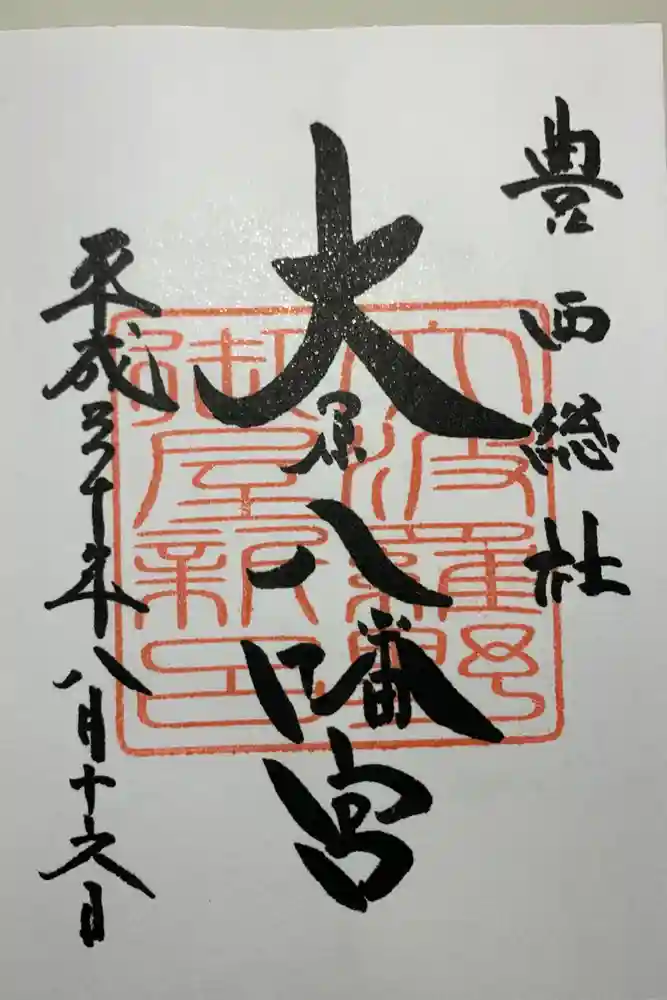 豊西総社
大原八幡宮
平成三十年八月十六日